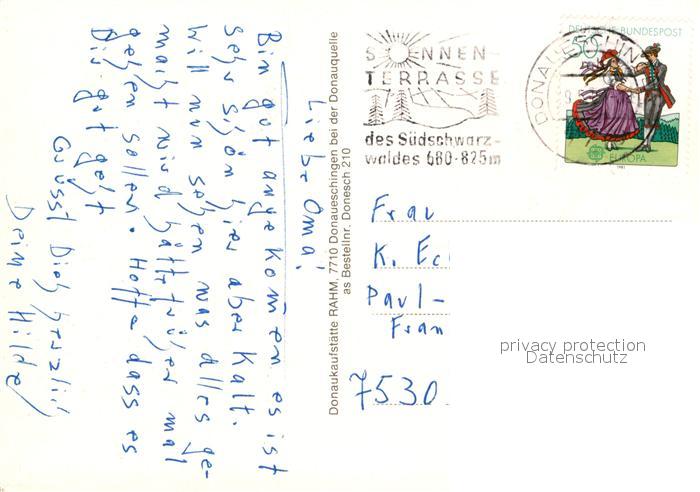 Liebe Oma!
Bin gut angekom̄en es ist
sehr schön hier aber Kalt.
Will nun sehen was alles ge-
macht wird hätte früher mal
gehen sollen. Hoffe dass es
Dir gut geht
Grüsst Dich herzlich
Deine Hilde
Donaukaufstätte RAHM, 7710 Donaueschingen bei der Donauquelle
as Bestellnr. Donesch 210
SONNEN-
TERRASSE
des Südschwarz-
waldes 680-825m
DONAUESCHIN
DEUTSCHE BUNDESPOST
50
EUROPA
1981
Frau
K. Ec
Paul-
Fran
7530
privacy protection
Datenschutz